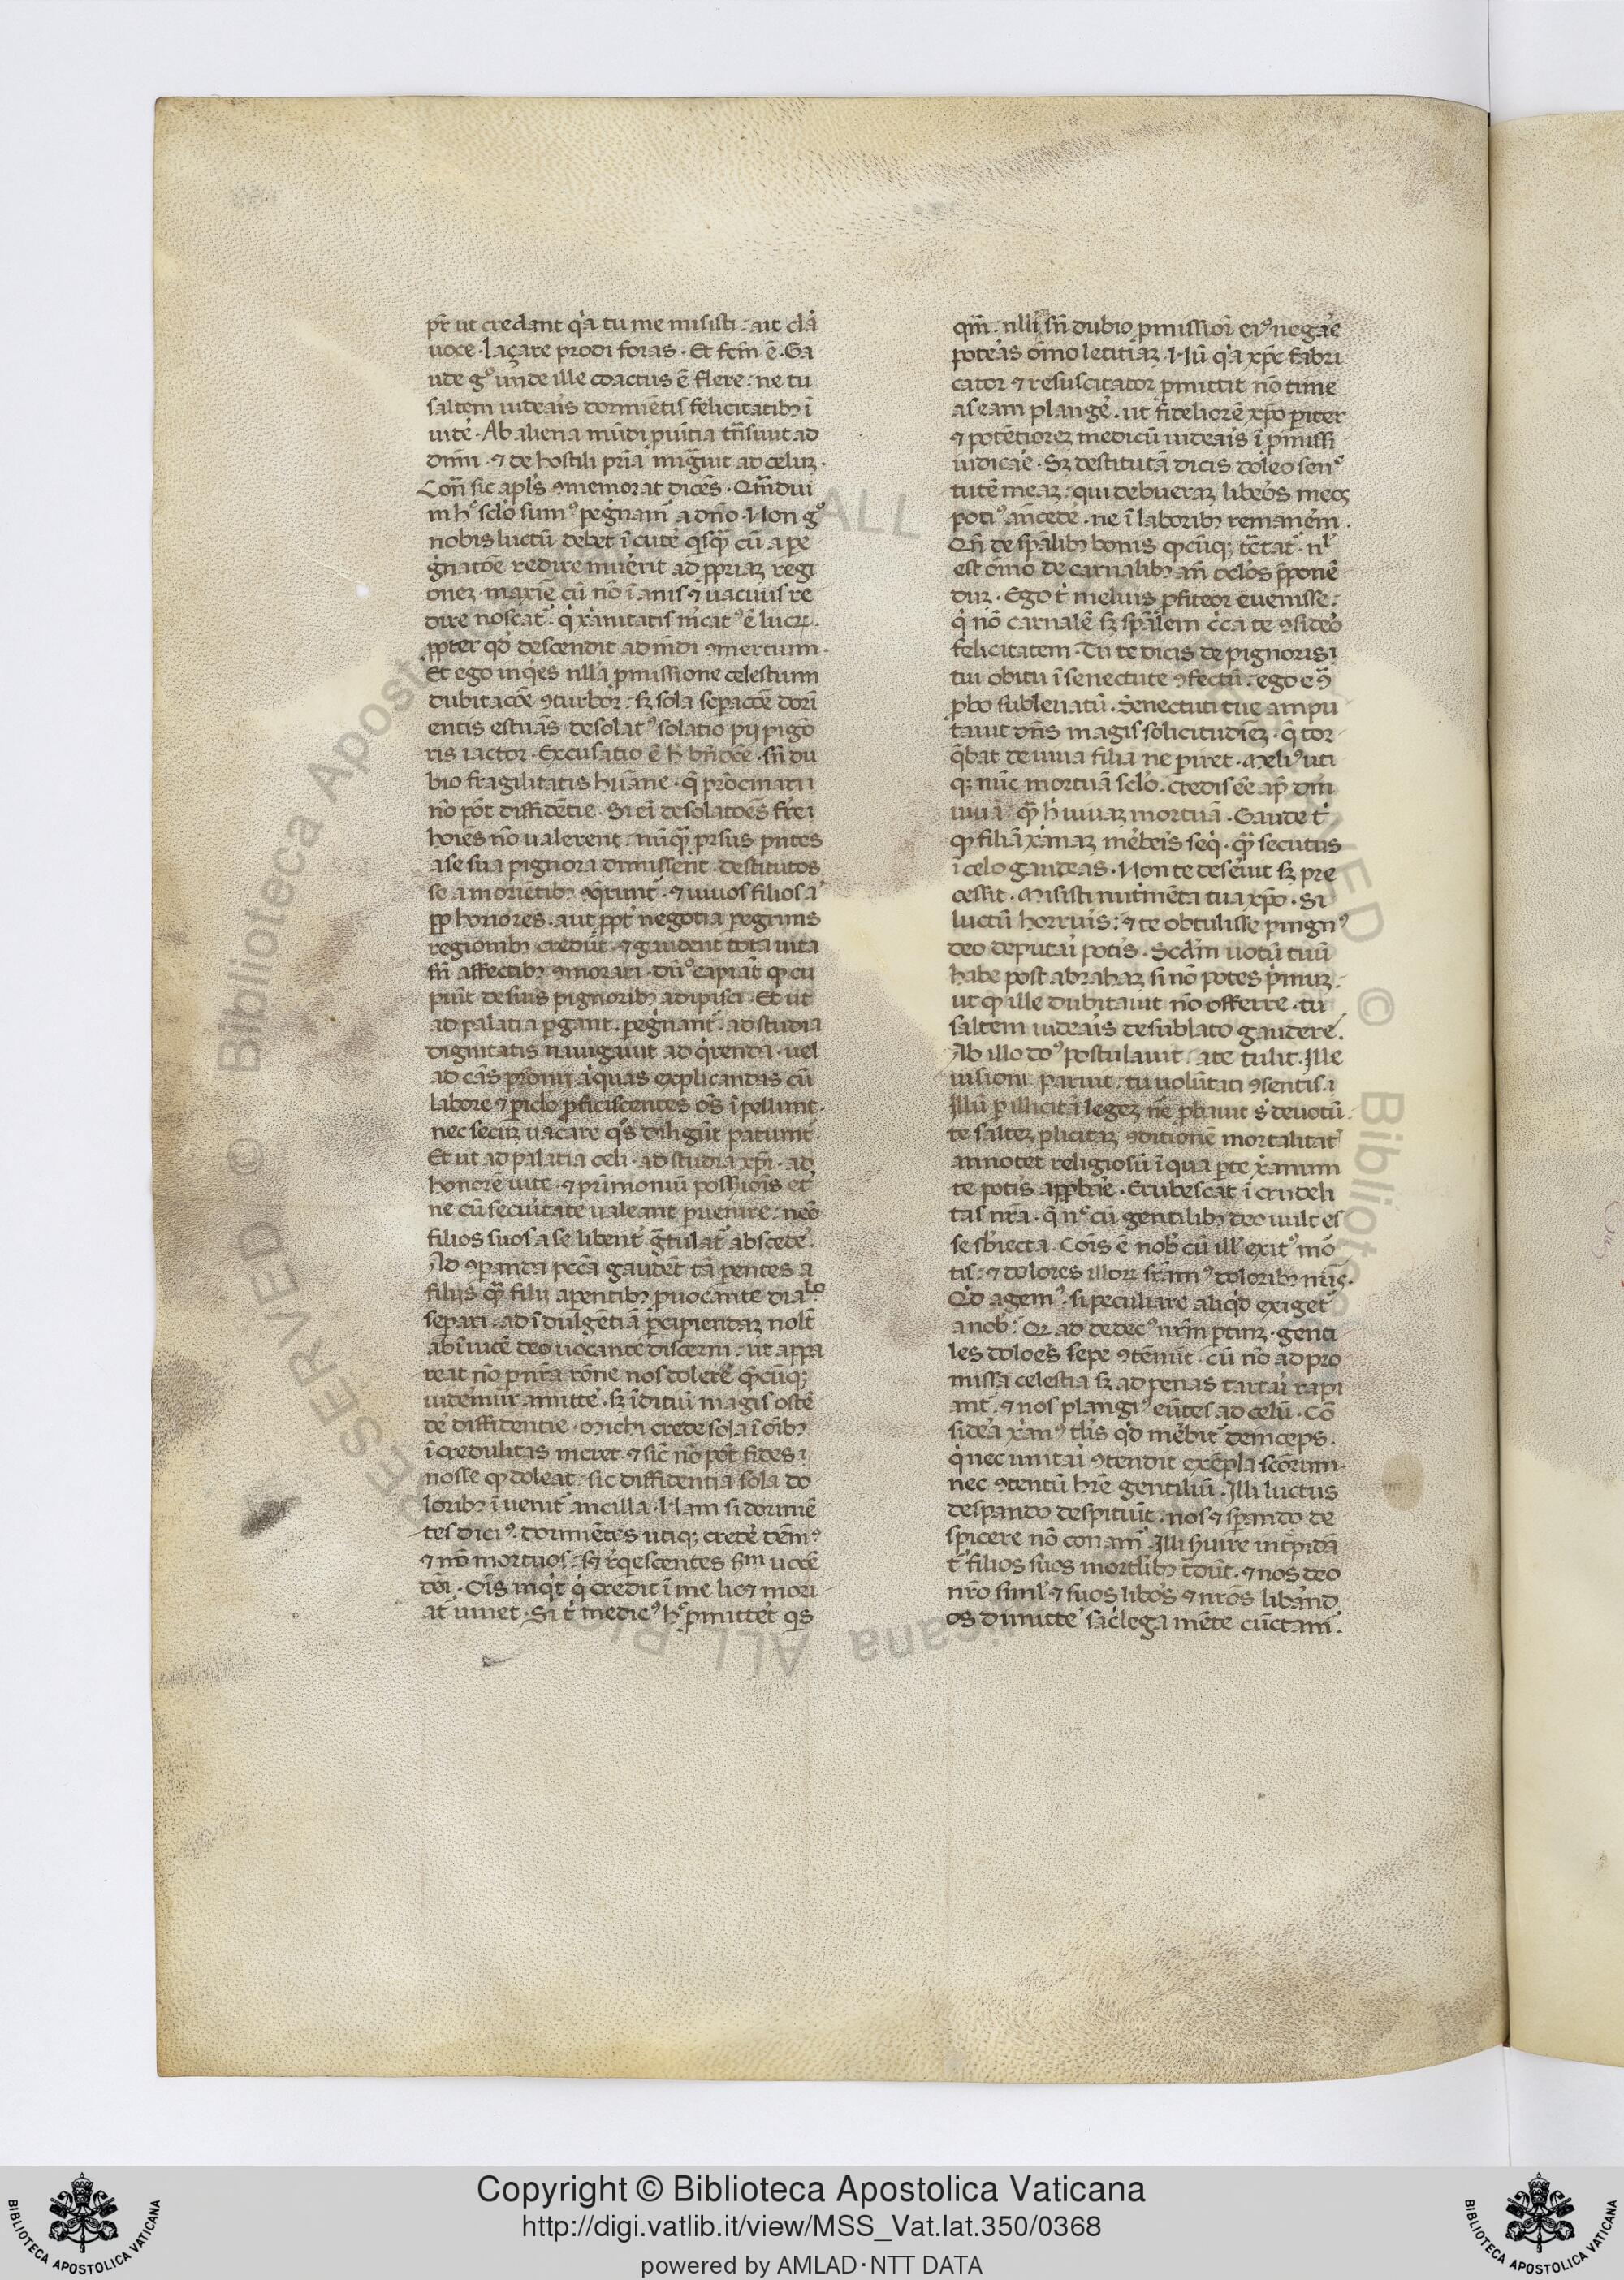 pr̄ ut credant qͥa tu me misisti : ait clͣa
uoce · laçare prodi foras · Et fcm̄ ē · Ga
ude gͦ unde ille coactus ē flere : ne tu
saltem uidearis dormiētis felicitatibꝫ ī
uite · Ab aliena mūdi
dnm̄ · ⁊ de hostili pr̄ia migͣuit ad celuꝫ ·
sic apl̄s ꝯmemorat dicēs · Qm̄ diu
in hͦ sclo sumꝰ pegͥnam̄ a dn̄o · Non gͦ
nobis luctū debet īcute qͥsqͣꝫ cū a pe
gͥnatōe redire
onez · maxīe cū nō īanis ⁊ uacuus re
dire noscat᷑ · qͥ xͥanitatis
ꝓpter qd̓ descendit ad
Et ego inqͥes nlla ꝓmissione celestium
dubitacōe ꝯturbor : sꝫ sola sepacōe dorm̄
entis estuās desolatꝰ solatio pij pigō
ris iactor · Excusatio ē
bio fragilitatis hūane · qͥ
nō pōt diffidētie · Si em̄ desolatōes
hoīes nō ualerent : nūqͣꝫ prsus pn̄tes
a se sua pignora dimissent · destitutos
se a moriētibꝫ qͥrunt᷑ · ⁊ uiuos filios
ꝓp honores · aut ꝓpt̓ negotia pegͥnis
regionibꝫ credūt · ⁊ gaudent tota uita
sn̄ affectibꝫ ꝯmorari · dūꝰ capiāt qͦ cu
piūt de suis pignoribꝫ adipisci · Et ut
ad palatia pgant · pegͥnant᷑ · ad studia
dignitatis nauigāut ad qͥrenda · uel
ad explicandas cū
labore ⁊ piclo ꝓficiscentes īpellunt ·
nec secuꝫ uacare qͦs diligūt patiunt᷑ ·
Et ut ad palatia celi · ad studia xp̄i · ad
honorē uite · ⁊
ne cū secuͥtate ualeant puenire : nec̄
filios suos a se libent̓ gͣtulat᷑ abscede ·
Ad ꝯpanda pcc̄a gaudēt tā pentes a
filijs qͣꝫ filij a pentibꝫ ꝓuocante diabͦlo
separi · ad īdulgētiā pcipiendaꝫ nolt̄
ab īuicē deo uocante discerni : ut appa
reat nō p nr̄a rōne nos dolere qͦcūqꝫ
uidem̄ur amitte : sꝫ īdituū magis ostē
de diffidentie · Michi crede sola ī oībꝫ
īcredulitas meret · ⁊ sic̄ nō pōt fides
nosse qͦ doleat : sic diffidentia sola do
loribꝫ īuenit᷑ ancilla · Nam si dormiē
tes diciꝰ · dormiētes utiqꝫ crede
⁊ nō mortuos : sꝫ rͥqescentes sm̄ uocē
dn̄i · Oīs inqͥt qͥ credit ī me licꝫ mori
at᷑ uiuet · Si t̓ medicꝰ hͦ ꝓmitteret qͥs
qm̄ · nlli sn̄ dubio ꝓmissiōi eiꝰ negare
poteͣs om̄o letitiaꝫ · Nū qͥa xp̄c fabri
cator ⁊ resuscitator ꝓmittit nō time
as eam plange · ut fideliorē xp̄o
⁊ potētiorez medicū uidearis ī ꝓmissꝫ
iudicare · Sꝫ destitutā dicis doleo senͨ
tutē meaꝫ : qui debueraꝫ libeͦs meos
potiꝰ an̄cede · ne ī laboribꝫ remanerem ·
Qn̄ de spāalibꝫ bonis qͦcūqꝫ tc̄tat᷑ · nͥl
est om̄o de carnalibꝫ an̄ oclos ꝓponē
duꝫ · Ego t̓ melius ꝓfiteor euenisse :
qͥ nō carnalē sꝫ spāalem cͥca te ꝯsideͦ
felicitatem · Tu te dicis de pignoris
tui obitu ī senectute ꝯfectū : ego
pbo subleuatū · Senectuti tue ampu
tauit dn̄s magis solicitudinez · qͥ tor
qͥbat de uiua filia ne piret · Meliꝰ uti
qꝫ nūc mortuā sclo · credis eē ap̄ dm̄
uiuā : qͣꝫ hͥ uiuaꝫ mortuā · Gaude t̓
qͦ filiā xͥanaꝫ mēbris seqͥ · qͣꝫ secutus
ī celo gaudeas · Non te deseruit sꝫ pre
cessit · Misisti nutrimēta tua xp̄o · Si
luctū horruis : ⁊ te obtulisse pingnꝰ
deo deputaͥ potis · Scdm̄ uotū tuū
habe post abrahaꝫ si nō potes pͥmuꝫ ·
ut qͦ ille dubitauit nō offerre · tu
saltem uidearis de sublato gaudere ·
Ab illo dꝰ postulauit · a te tulit · Ille
uisioni paruit · tu uolūtati ꝯsentis
Illū p illicitā legeꝫ ne pbauit s̓ deuotū ·
te saltez plicitaꝫ ꝯditionē mortalitatͥ
annotet religiosū ī qua pte xͥanum
te potis appbare · Erubescat īcrudeli
tas nr̄a · qͥ nͨ cū gentilibꝫ deo uult es
se sbiecta · Cōis ē nob̓ cū ill̓ exitꝰ moͬ
tis : ⁊ dolores illoꝝ doloribꝫ nr̄is ·
Qd̓ agemꝰ · si peculiare aliqͥd exiget᷑
a nob̓ · Qꝫ ad dedecꝰ nr̄m ptinꝫ · genti
les doloēs sepe ꝯtēnūt · cū nō ad pro
missa celestia sꝫ ad penas tartari rapi
ant᷑ · ⁊ nos plangiꝰ eūtes ad celū · Cō
sidea xͥanꝰ tl̓is qͥd mērebit᷑ deinceps ·
qͥ nec imitaͥ ꝯtendit exēpla sc̄orum ·
nec ꝯtentū hr̄e gentiliū · Illi luctus
despando despiciūt · nos ⁊ spando de
spicere nō conam᷑ · Illi
t᷑ filios suos mortlibꝫ t̄dūt · ⁊ nos deo
nr̄o simul ⁊ suos libos ⁊ nr̄os liband
os dimitte sacͥlega mēte cūctam᷑ ·
Copyright © Biblioteca Apostolica Vaticana
http://digi.vatlib.it/view/MSS_Vat.lat.350/0368
powered by AMLAD·NTT DATA
BIBLIOTECA APOSTOLICA VATICANA
BIBLIOTECA APOSTOLICA VATICANA